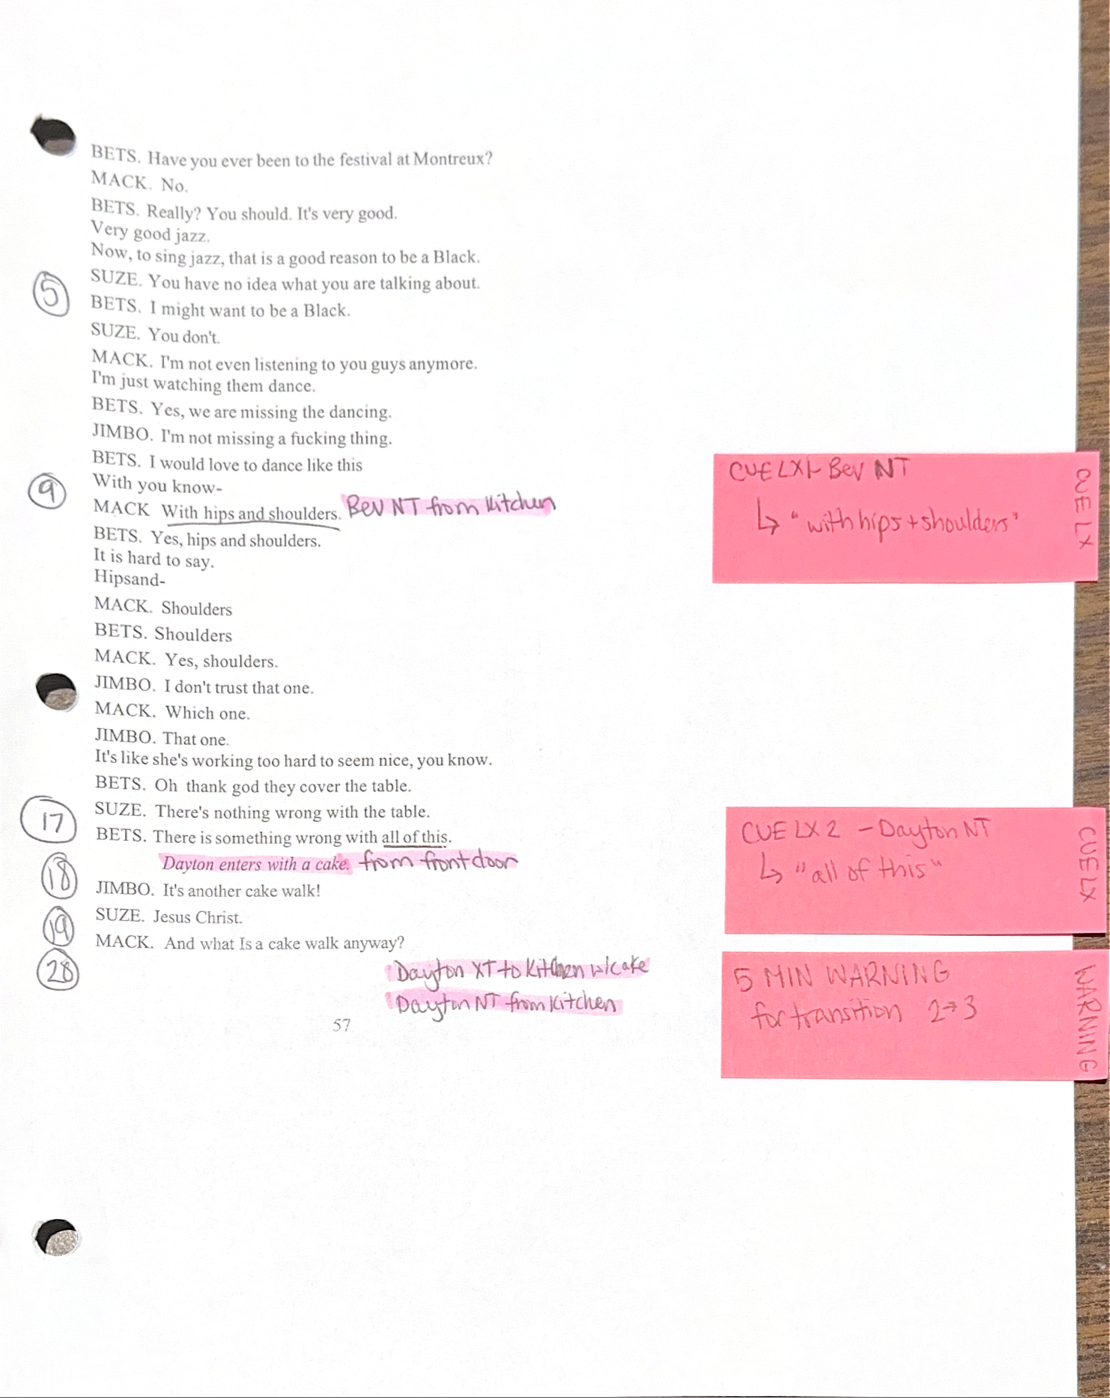 BETS. Have you ever been to the festival at Montreux?
MACK. No.
BETS. Really? You should. It's very good.
Very good jazz.
Now, to sing jazz, that is a good reason to be a Black.
5 SUZE. You have no idea what you are talking about.
BETS. I might want to be a Black.
SUZE. You don't.
MACK. I'm not even listening to you guys anymore.
I'm just watching them dance.
BETS. Yes, we are missing the dancing.
JIMBO. I'm not missing a fucking thing.
BETS. I would love to dance like this
9 With you know-
MACK With hips and shoulders. Bev NT from Kitchen
BETS. Yes, hips and shoulders.
It is hard to say.
Hipsand-
MACK. Shoulders
BETS. Shoulders
MACK. Yes, shoulders.
JIMBO. I don't trust that one.
MACK. Which one.
JIMBO. That one.
It's like she's working too hard to seem nice, you know.
BETS. Oh thank god they cover the table.
17 SUZE. There's nothing wrong with the table.
BETS. There is something wrong with all of this.
18 Dayton enters with a cake. from front door
JIMBO. It's another cake walk!
19 SUZE. Jesus Christ.
MACK. And what Is a cake walk anyway?
28 Dayton XT to Kitchen w/cake
Dayton NT from Kitchen
57
CUE LX1- Bev NT
↳ "with hips + shoulders"
CUE LX
CUE LX 2 - Dayton NT
↳ "all of this"
CUE LX
5 MIN WARNING
for transition 2→3
WARNING